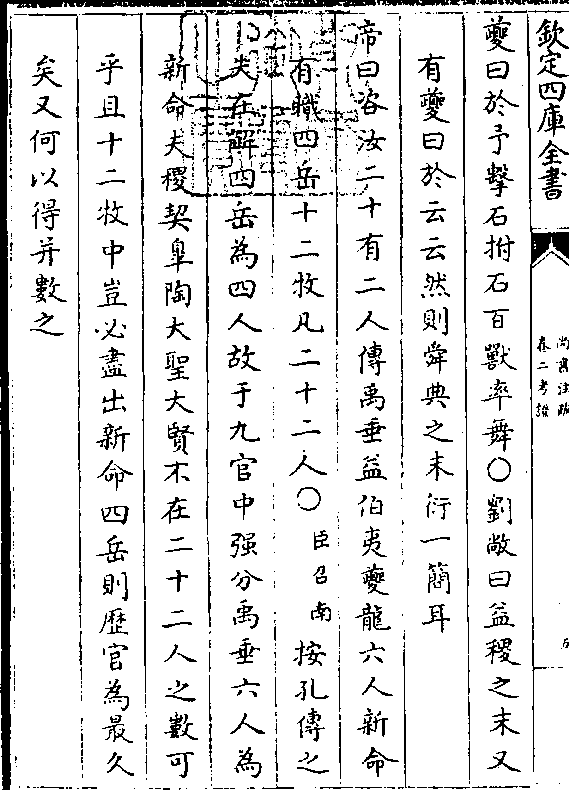 欽定四庫全書
尚書注疏
卷二考證
夔曰於予擊石拊石百獸率舞〇劉敞曰益稷之末又
有夔曰於云云然則舜典之末衍一簡耳
帝曰咨汝二十有二人傳禹垂益伯夷夔龍六人新命
有職四岳十二牧凡二十二人〇臣召南按孔傳之
失在解四岳為四人故于九官中强分禹垂六人為
新命夫稷契臯陶大聖大賢不在二十二人之數可
乎且十二牧中豈必盡出新命四岳則歷官為最久
矣又何以得并數之